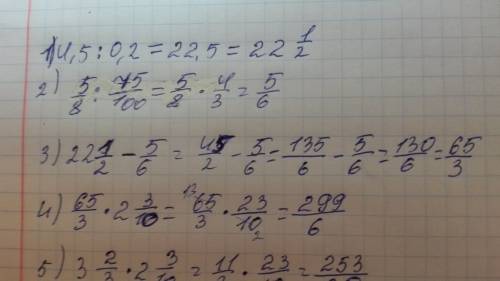 1) 4,5 : 0,2 = 22,5 = 22 1/2
2) 5/8 : 75/100 = 5/8 · 4/3 = 5/6
3) 22 1/2 - 5/6 = 45/2 - 5/6 = 135/6 - 5/6 = 130/6 = 65/3
4) 65/3 · 2 3/10 = 13 65/3 · 23/10 2 = 299/6
5) 3 2/3 · 2 3/10 = 11/3 · 23/10 = 253